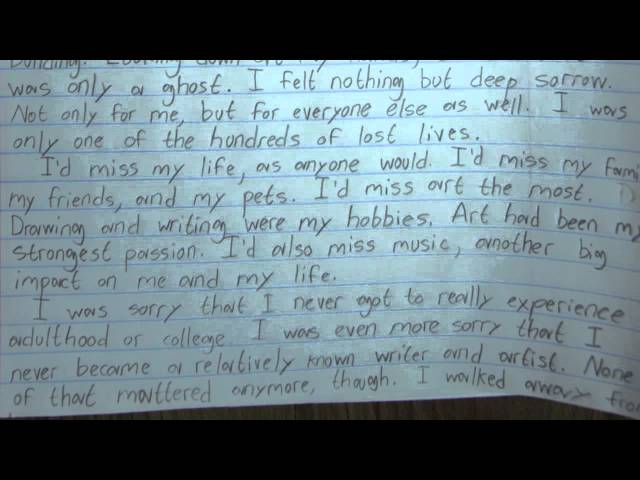 building. Looking down at my hands, I
was only a ghost. I felt nothing but deep sorrow.
Not only for me, but for everyone else as well. I was
only one of the hundreds of lost lives.
I'd miss my life, as anyone would. I'd miss my fami
my friends, and my pets. I'd miss art the most.
Drawing and writing were my hobbies. Art had been my
strongest passion. I'd also miss music, another big
impact on me and my life.
I was sorry that I never got to really experience
adulthood or college. I was even more sorry that I
never became a relatively known writer and artist. None
of that mattered anymore, though. I walked away from